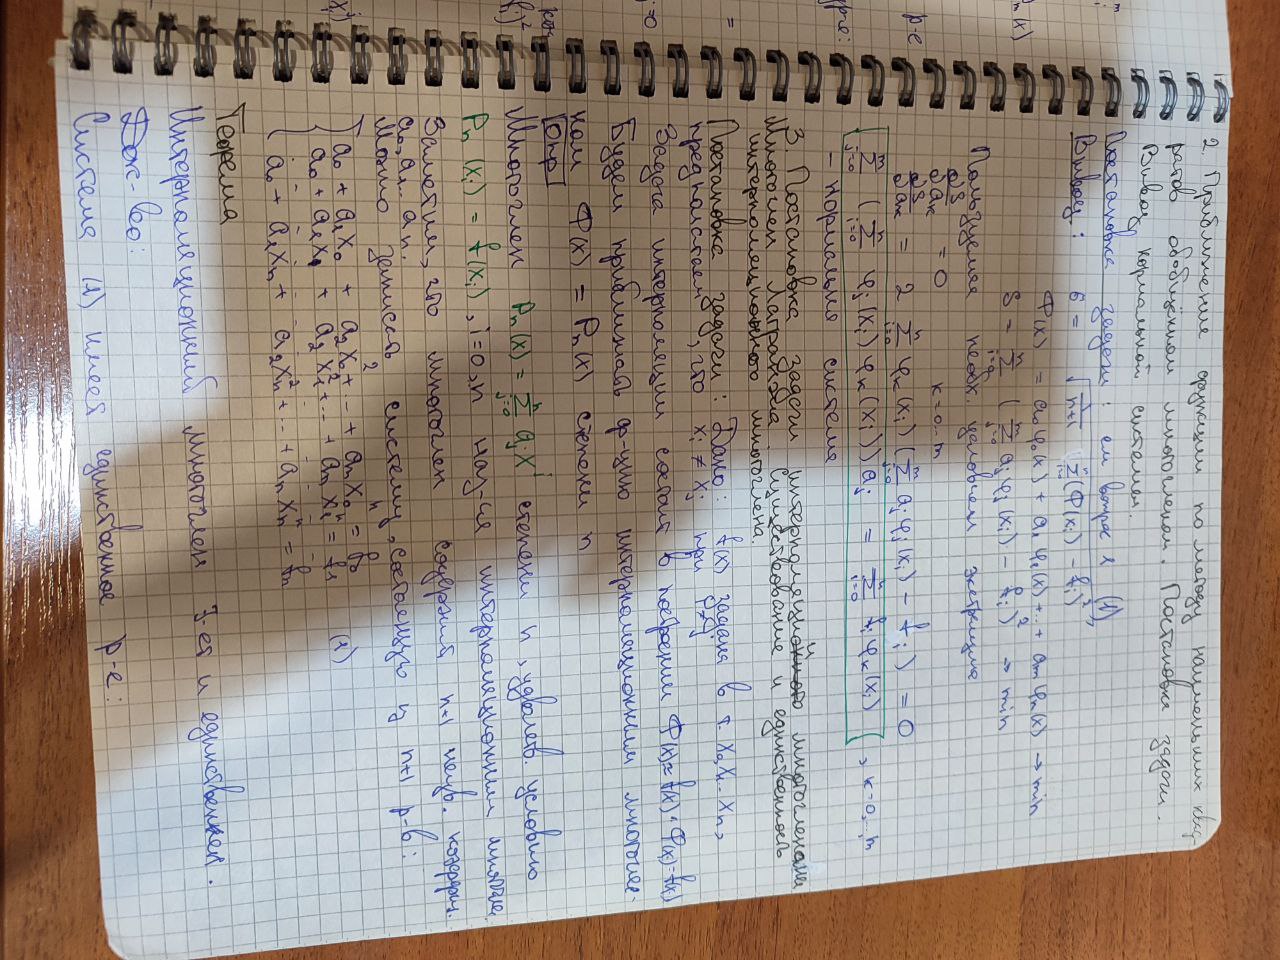 2. Приближение функции по методу наименьших квад-
ратов обобщённом многочленом. Постановка задачи.
Вывод нормальной системы.
Постановка задачи: см вопрос 1 (1)
Вывод: б = √(1/(n+1) Σ_{i=0}^{n} (Φ(x_i) - f_i)²)
Φ(x) = a₀φ₀(x) + a₁φ₁(x) + ... + a_mφ_n(x) → min
S = Σ_{i=0}^{n} (Σ_{j=0}^{m} a_jφ_j(x_i) - f_i)² → min
Пользуемся необх. условием экстремума
∂S/∂a_k = 0 k=0...m
∂S/∂a_k = 2 Σ_{i=0}^{n} φ_k(x_i) (Σ_{j=0}^{m} a_jφ_j(x_i) - f_i) = 0
Σ_{j=0}^{m} (Σ_{i=0}^{n} φ_j(x_i) φ_k(x_i)) a_j = Σ_{i=0}^{n} f_i φ_k(x_i) , k=0,...m
- нормальня система
3. Постановка задачи интерполяции многочленами
Многочлен Лагранжа. Существование и единственность
интерполяционного многочлена.
Постановка задачи: Дано: f(x) задана в т. x₀,x₁...x_n,
предполагаем, что x_i ≠ x_j при i≠j
Задача интерполяции состоит в построении Φ(x)≈f(x): Φ(x_i)=f(x_i)
Будем приближать ф-цию интерполяционным многочле-
ном Φ(x) = P_n(x) степени n
Опр
Многочлен P_n(x) = Σ_{j=0}^{n} a_j x^j степени n, удволетв. условию
P_n(x_i) = f(x_i), i=0,n наз-ся интерполяционным многочле
Заметим, что многочлен содержит n+1 неизв. коэффиц.
a₀,a₁...a_n.
Можно записать систему, состаящую из n+1 р-в:
a₀ + a₁x₀ + a₂x₀² + ... + a_nx₀ⁿ = f₀
a₀ + a₁x₁ + a₂x₁² + ... + a_nx₁ⁿ = f₁ (1)
a₀ + a₁x_n + a₂x_n² + ... + a_nx_nⁿ = f_n
Теорема
Интерполяционный многочлен ∃-ет и единственен.
Док-во:
Система (1) имеет единственное р-е: